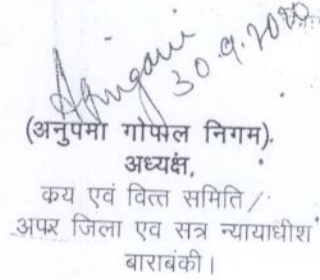 30.9.2020
(अनुपमा गोपाल निगम).
अध्यक्ष,
कय एवं वित्त समिति /
अपर जिला एव सत्र न्यायाधीश
बाराबंकी।